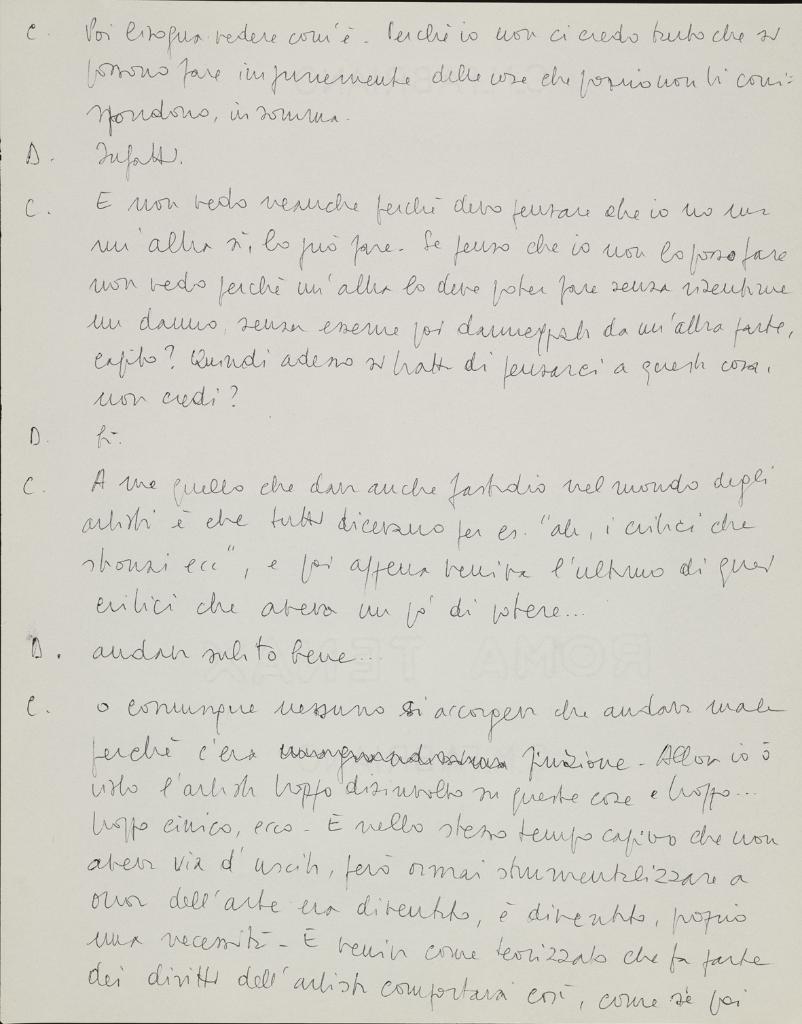 C. Poi bisogna vedere com'è. Perché io non ci credo tanto che si
possono fare impunemente delle cose che proprio non ti corri-
spondono, insomma.
D. Infatti.
C. E non vedo neanche perché devo pensare che io no ma
un'altra sì, lo può fare. Se penso che io non lo posso fare
non vedo perché un'altra lo deve poter fare senza risentirne
un danno, senza esserne poi danneggiata da un'altra parte,
capito? Quindi adesso si tratta di pensarci a questa cosa,
non credi?
D. Sì.
C. A me quello che dava anche fastidio nel mondo degli
artisti è che tutti dicevano per es. "ah, i critici che
stronzi ecc", e poi appena veniva l'ultimo di quei
critici che aveva un pò di potere...
D. andava subito bene...
C. o comunque nessuno si accorgeva che andava male
perché c'era finzione. Allora io ò
visto l'artista troppo disinvolto su queste cose e troppo...
troppo cinico, ecco. E nello stesso tempo capivo che non
aveva via d'uscita, però ormai strumentalizzare a
onor dell'arte era diventato, è diventato, proprio
una necessità. E veniva come teorizzato che fa parte
dei diritti dell'artista comportarsi così, come se poi
ROMA TENAX